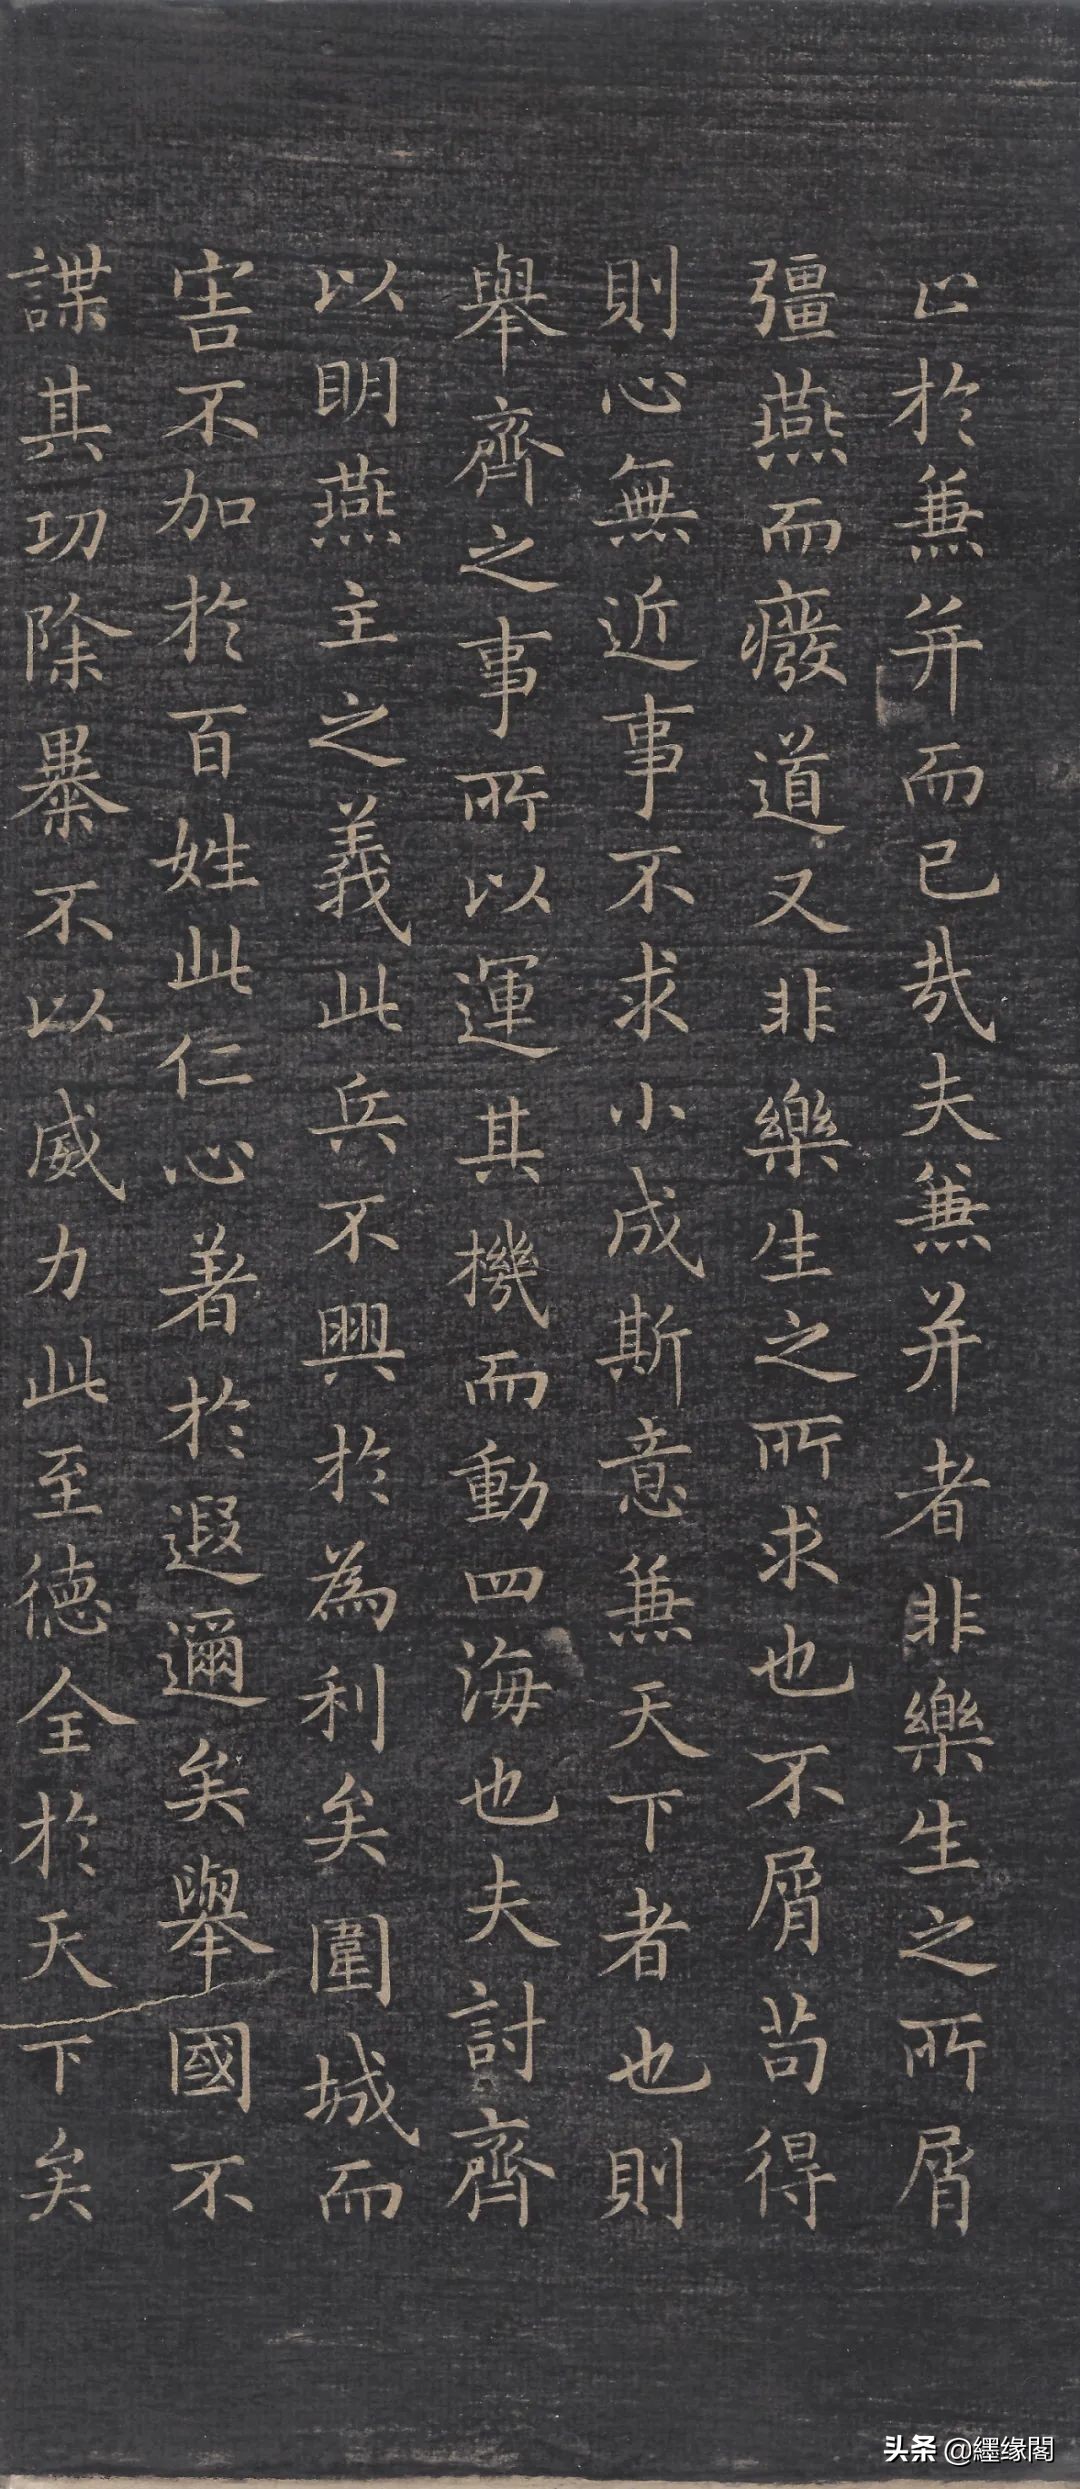 㠯於兼并而已哉夫兼并者非樂生之所屑
彊燕而癈道又非樂生之所求也不屑苟得
則心無近事不求小成斯意兼天下者也則
舉齊之事所以運其機而動四海也夫討齊
以明燕主之義此兵不興於為利矣圍城而
害不加於百姓此仁心著於遐邇矣舉國不
謀其功除暴不以威力此至德全於天下矣
头条 @纆缘閣